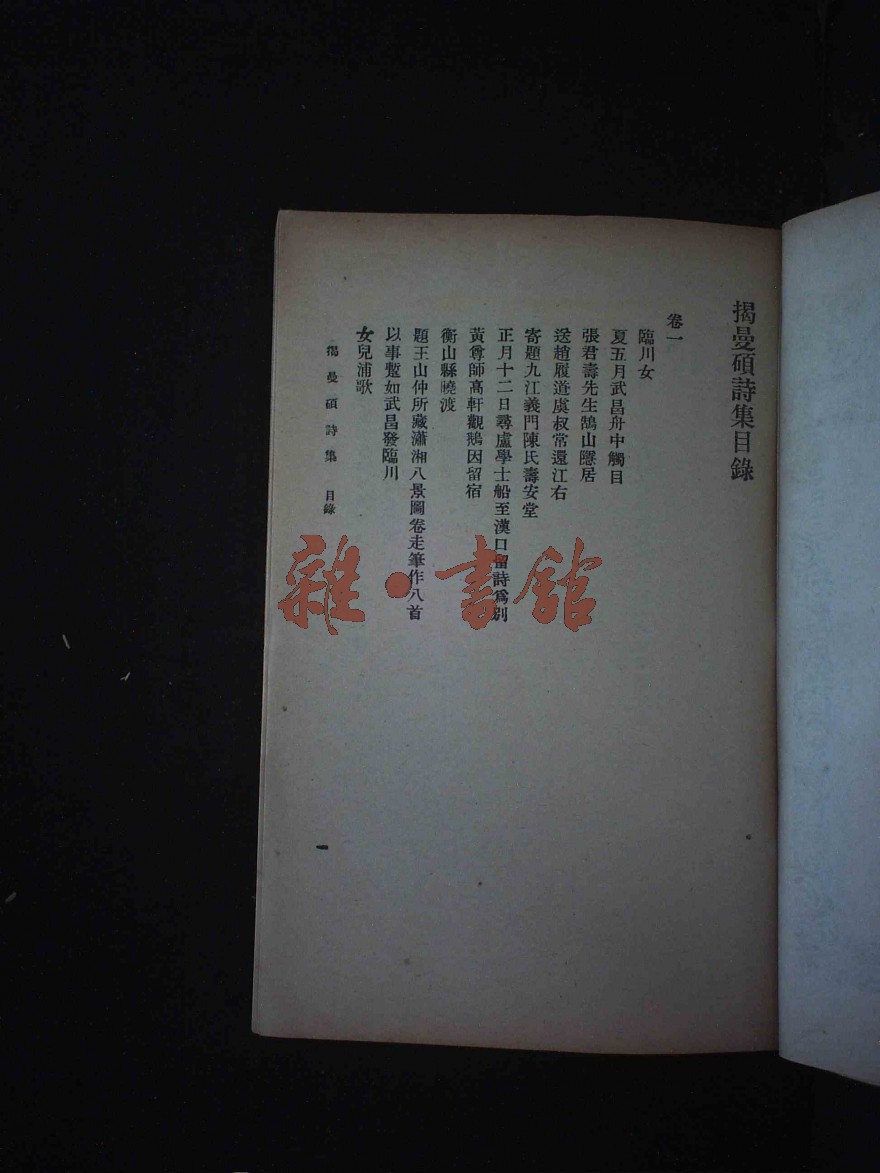 揭曼碩詩集目錄
卷一
臨川女
夏五月武昌舟中觸目
張君壽先生鵠山隱居
送趙履道虞叔常還江右
寄題九江義門陳氏壽安堂
正月十二日尋盧學士船至漢口留詩爲別
黃尊師高軒觀鵝因留宿
衡山縣曉渡
題王山仲所藏瀟湘八景圖卷走筆作八首
以事蹔如武昌發臨川
女兒浦歌
揭曼碩詩集 目錄
一
雜·書館